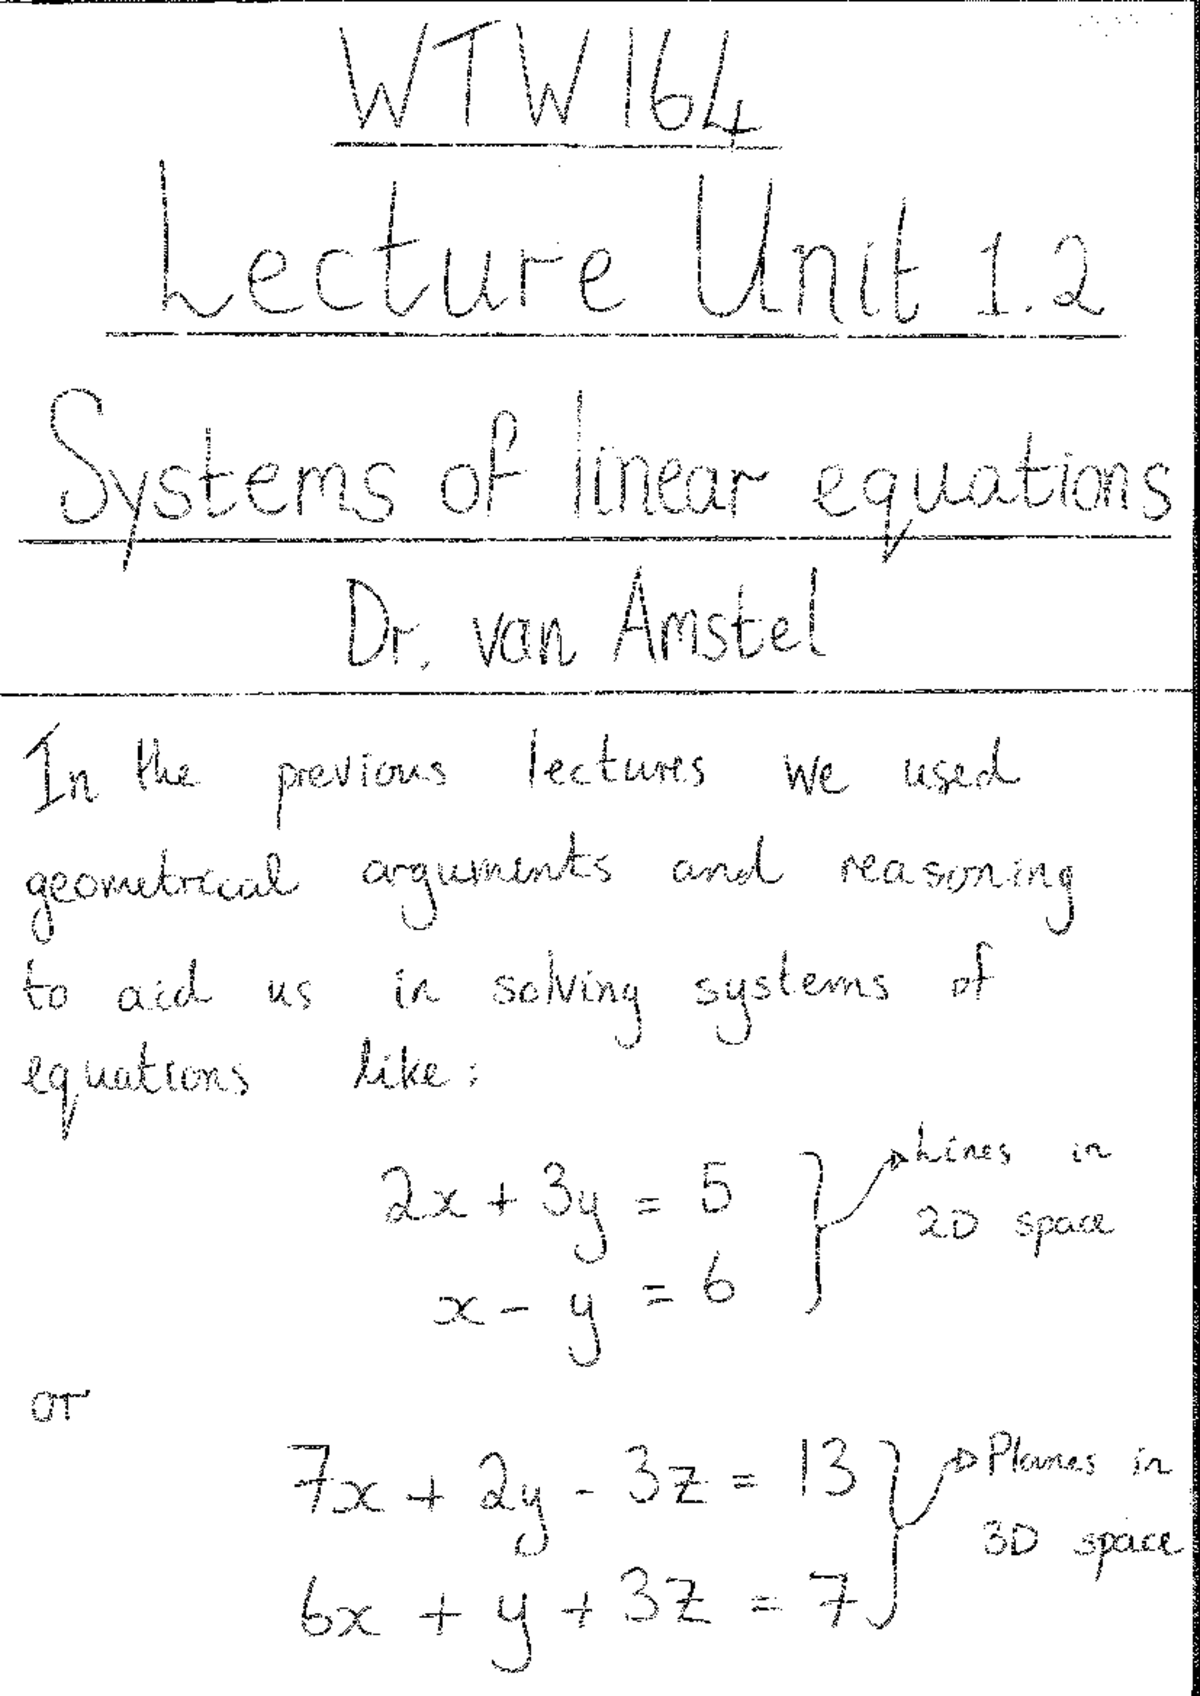 WTW 164
Lecture Unit 1.2
Systems of linear equations
Dr. van Amstel
In the previous lectures we used
geometrical arguments and reasoning
to aid us in solving systems of
equations like:
2x + 3y = 5
x - y = 6
Lines in
2D space
or
7x + 2y - 3z = 13
6x + y + 3z = 7
Planes in
3D space